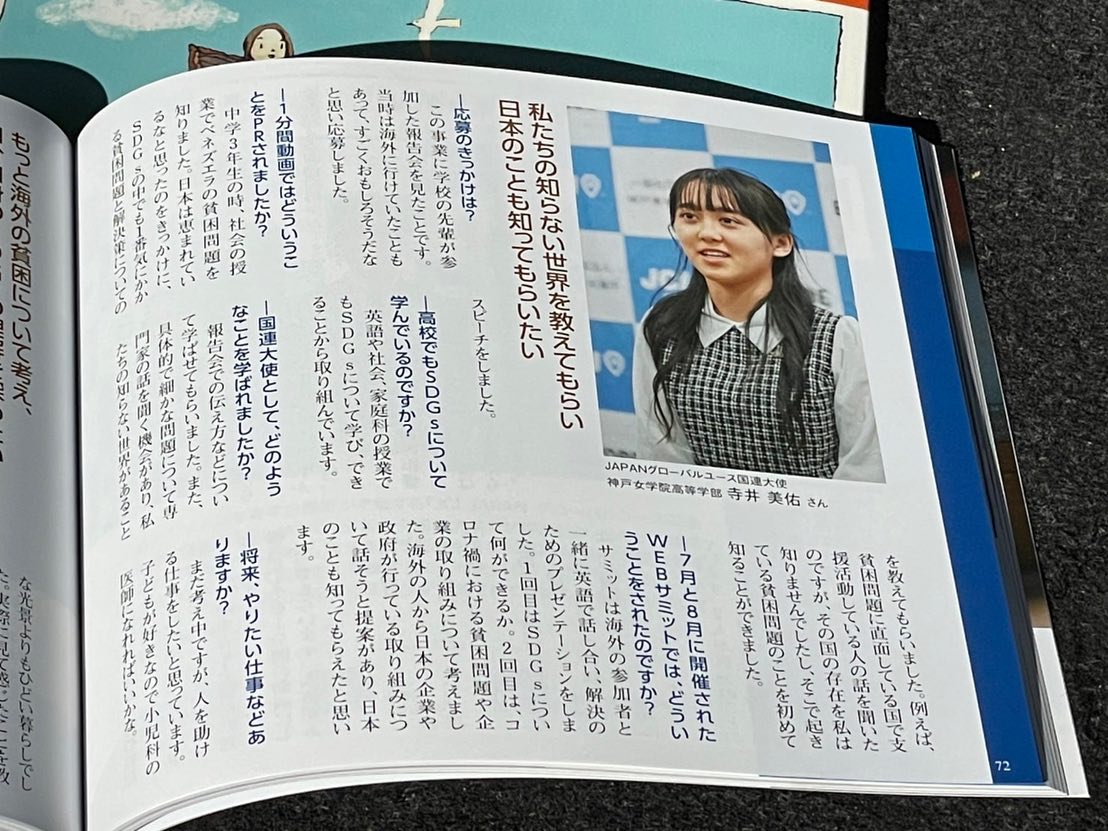 私たちの知らない世界を教えてもらい
日本のことも知ってもらいたい
JAPANグローバルユース国連大使
神戸女学院高等学部 寺井 美佑 さん
―応募のきっかけは?
この事業に学校の先輩が参
加した報告会を見たことです。
当時は海外に行けていたことも
あって、すごくおもしろそうだな
と思い応募しました。
―1分間動画ではどういうこ
とをPRされましたか?
中学3年生の時、社会の授
業でベネズエラの貧困問題を
知りました。日本は恵まれてい
るなと思ったのをきっかけに、
SDGsの中でも1番気にかか
る貧困問題と解決策についての
スピーチをしました。
―高校でもSDGsについて
学んでいるのですか?
英語や社会、家庭科の授業で
もSDGsについて学び、でき
ることから取り組んでいます。
―国連大使として、どのよう
なことを学ばれましたか?
報告会での伝え方などについ
て学ばせてもらいました。また、
具体的で細かな問題について専
門家の話を聞く機会があり、私
たちの知らない世界があること
を教えてもらいました。例えば、
貧困問題に直面している国で支
援活動している人の話を聞いた
のですが、その国の存在を私は
知りませんでしたし、そこで起き
ている貧困問題のことを初めて
知ることができました。
―7月と8月に開催された
WEBサミットでは、どうい
うことをされたのですか?
サミットは海外の参加者と
一緒に英語で話し合い、解決の
ためのプレゼンテーションをしま
した。1回目はSDGsについ
て何ができるか。2回目は、コ
ロナ禍における貧困問題や企
業の取り組みについて考えまし
た。海外の人から日本の企業や
政府が行っている取り組みにつ
いて話そうと提案があり、日本
のことも知ってもらえたと思い
ます。
―将来、やりたい仕事などあ
りますか?
まだ考え中ですが、人を助け
る仕事をしたいと思っています。
子どもが好きなので小児科の
医師になれればいいかな。
72
もっと海外の貧困について考え、
な光景よりもひどい暮らしでし